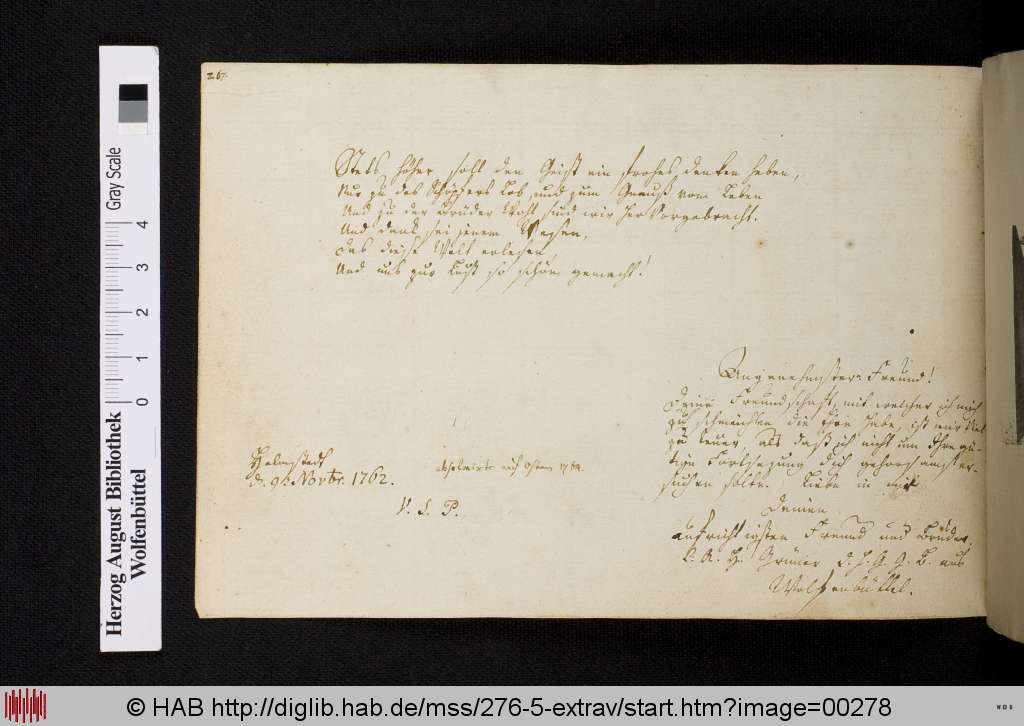 267.
Stets höher soll den Geist ein frohes denken heben,
Nur zu des Schöpfers Lob, und zum Genuß vom Leben
Und zu der Brüder Wohl sind wir hervorgebracht.
Und dank sei jenem Wesen,
Das diese Welt erlesen
Und uns zur Lust so schön gemacht!
Angenehmster Freund!
Deine Freundschaft, mit welcher ich mich
zu schmeicheln die Ehre habe, ist mir viel
zu teuer, als daß ich nicht um Ihre gü-
tige Fortsezung dich gehorsamst er-
suchen solte. Liebe in mir
Deinen
aufrichtigsten Freund und Brüder.
C. A. H. Grüner d. G. G. B. aus
Wolfenbüttel.
Helmstedt
d. 9t. Novbr. 1762.
absolvirte auf Ostern 1764.
V. S. P.
Herzog August Bibliothek
Wolfenbüttel
0 1 2 3 4
Gray Scale
© HAB http://diglib.hab.de/mss/276-5-extrav/start.htm?image=00278
WDB